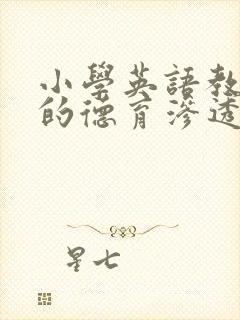 小學英語教
的德育滲透
星七